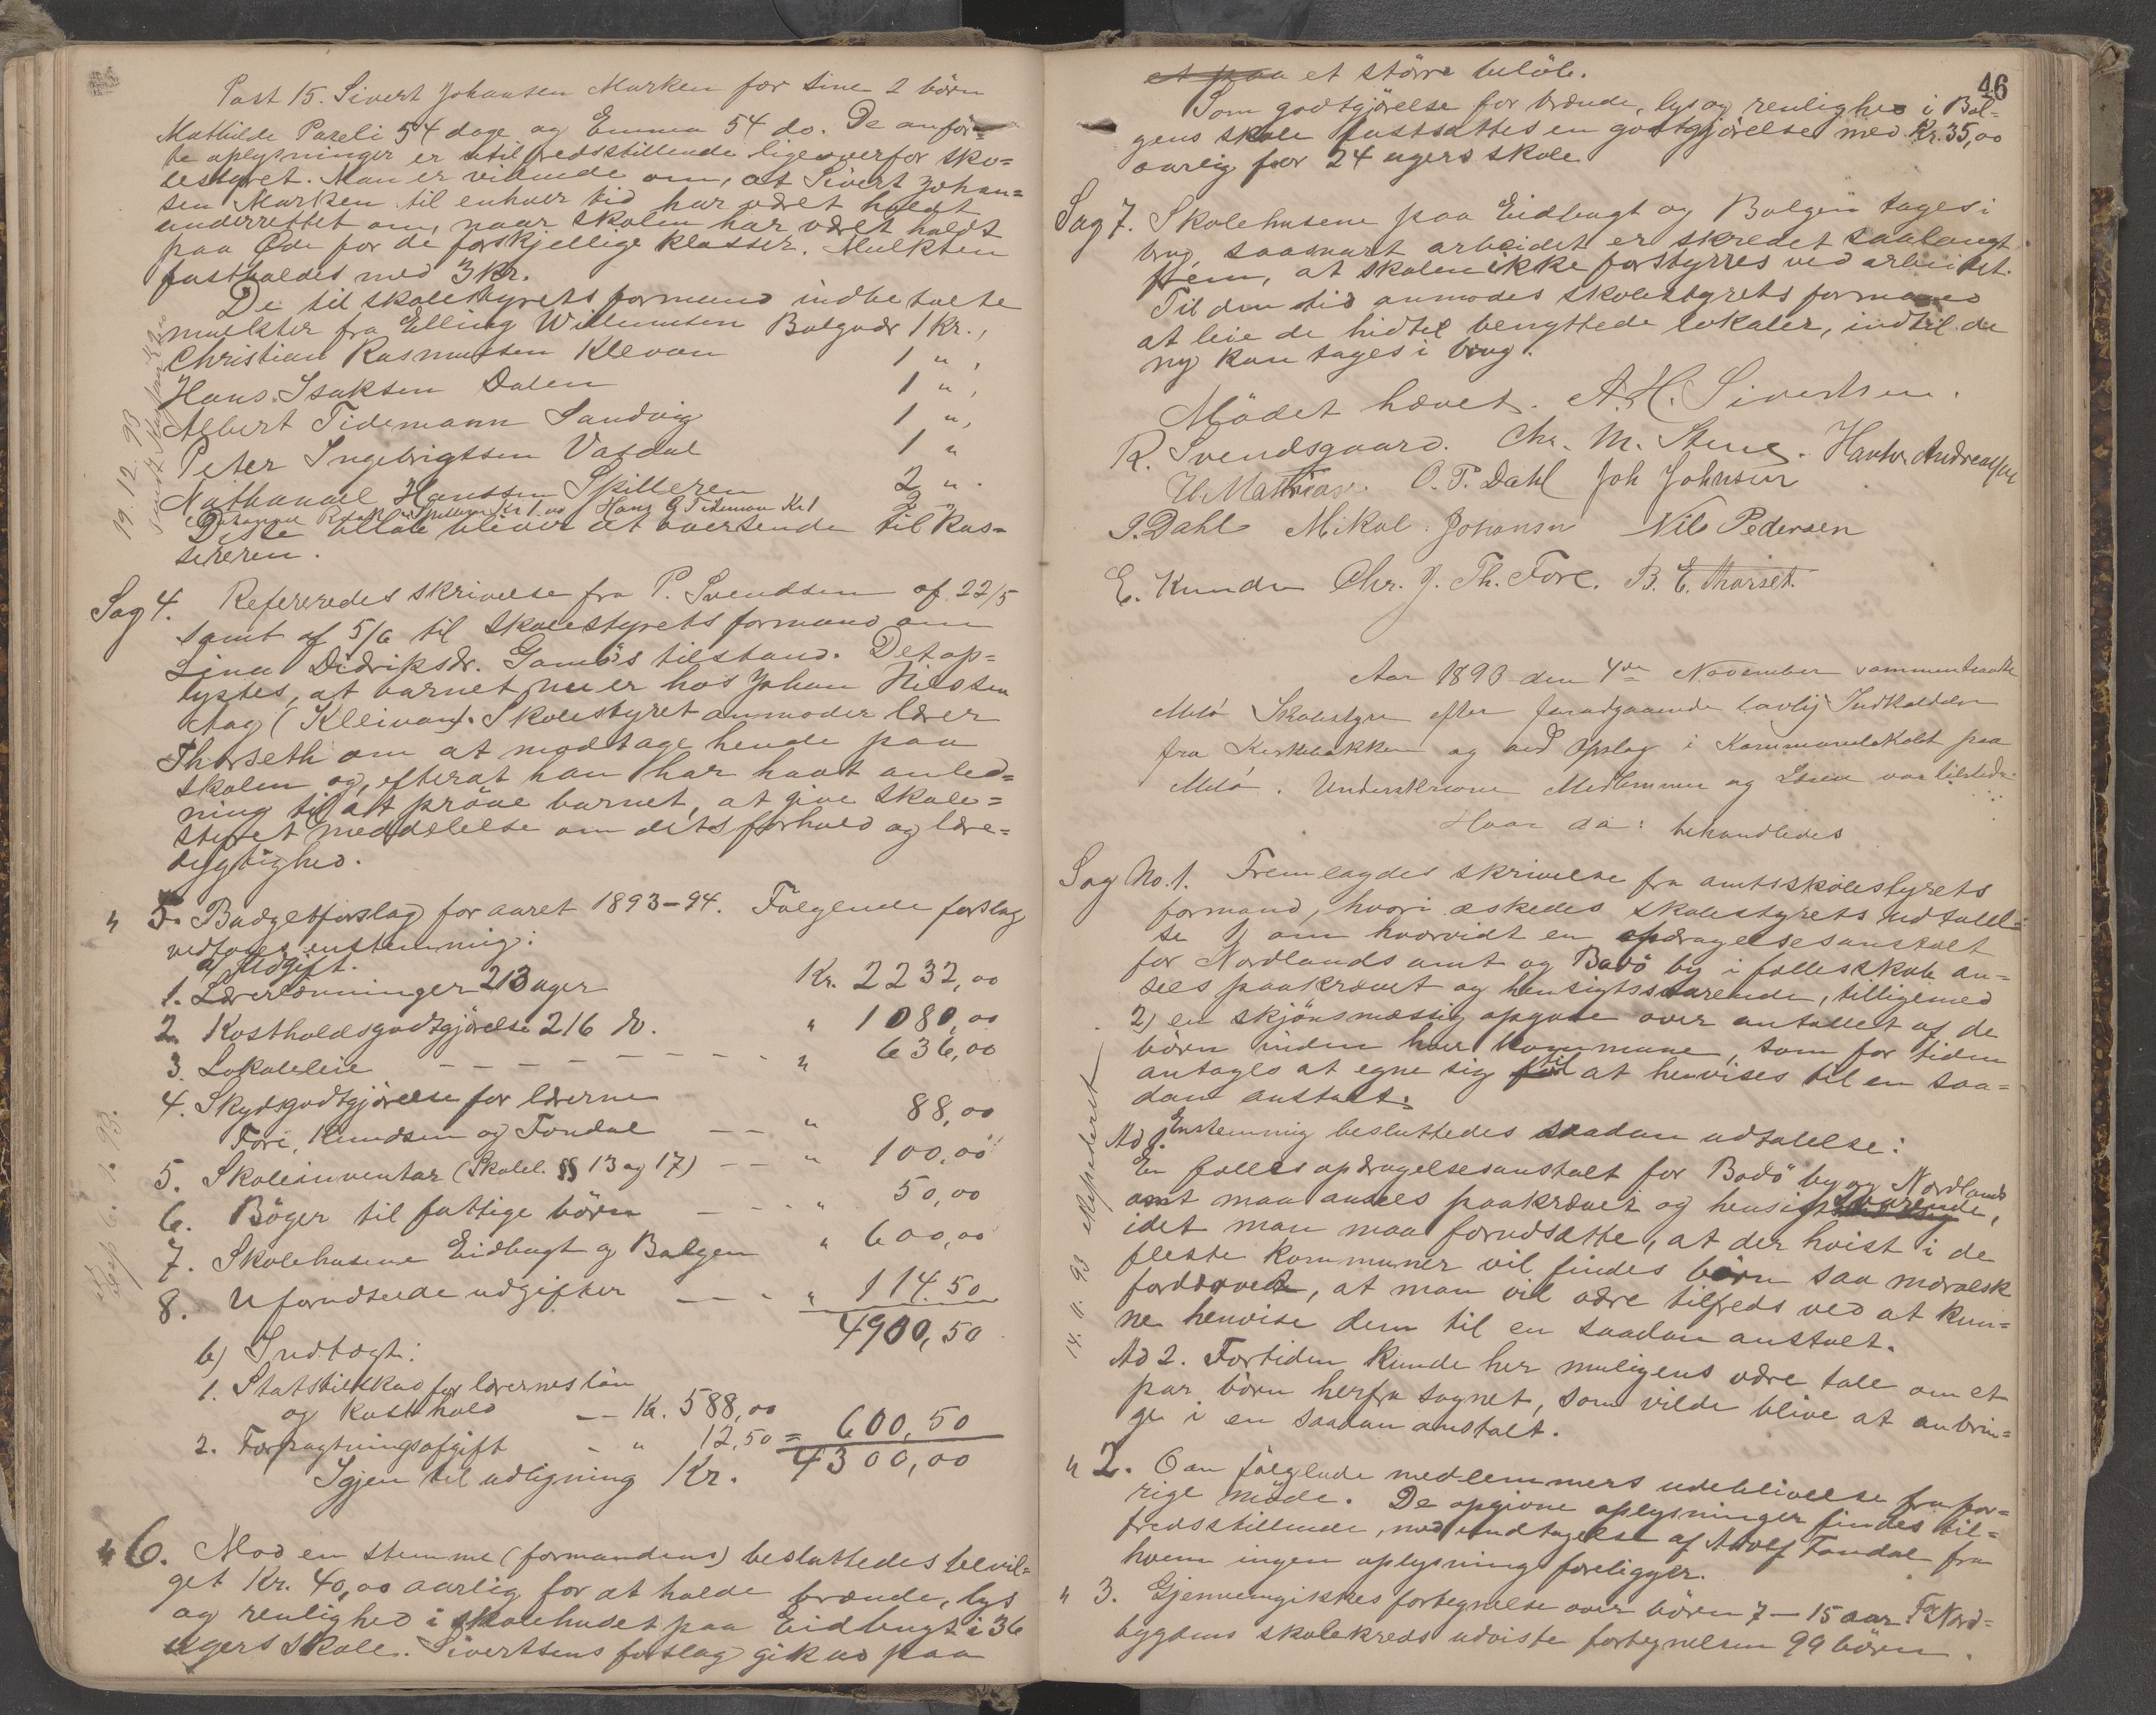 Post 15. Sivert Johansen Marken for sine 2 börn
Mathilde Pareli 54 dage og Emma 54 do. De anför=
te oplysninger er utilfredsstillende ligeoverfor sko=
lestyret. Man er vidende om, at Sivert Johan=
sen Marken til enhver tid har været holdt
underrettet om, naar skolen har været holdt
paa Öen for de forskjellige klasser. Mulkten
fastholdes med 3 Kr.
De til skolestyrets formand indbetalte
mulkter fra Elling Willumsen Bolgvær 1 Kr.,
Christian Rasmussen Klevan 1 " ,
Hans Isaksen Dalen 1 " ,
Albert Tidemann Sandvig 1 ",
Peter Ingebrigtsen Vasdal 1 "
Nathanael Hanssen Spilleren 2 " .
Hans G Tideman Kr 1
Disse blev at oversende til kas=
sereren.
19. 12. 93
Sag 4. Refereredes skrivelse fra P. Svendsen af 22/5
samt af 5/6 til skolestyrets formand om
Lina Didriksdr. Gamös tilstand. Det op=
lystes, at barnet nu er hos Johan Nilssen
Aag (Kleivan). Skolestyret anmoder lærer
Thorseth om at modtage hende paa
skolen og, efterat han har havt anled=
ning til at pröve barnet, at give skole=
styret meddelelse om dets forhold og lære=
dygtighed.
" 5. Budgetforslag for aaret 1893-94. Fölgende forslag
vedtoges enstemmig:
a) Udgift.
1. Lærerlönninger 213 uger Kr. 2232,00
2. Kostholdsgodtgjörelse 216 do. " 1080,00
3. Lokaleleie - - - - - - - " 636,00
4. Skydsgodtgjörelse for lærerne
Fore, Knudsen og Fondal - - " 88,00
5. Skoleinventar (Skolel. §§ 13 og 17) - - " 100,00
6. Böger til fattige börn - - - " 50,00
7. Skolehusene Eidbugt og Bolgen " 600,00
8. Uforudseede udgifter - - " 114.50
4900,50
b) Indtægt:
1. Statstilskud for lærernes lön
og kosthold - Kr. 588,00
2. Forpagtningsafgift - " 12,50 = 600,50
Igjen til udligning Kr. 4300,00
" 6. Mod en stemme (formandens) besluttedes bevil=
get Kr. 40,00 aarlig for at holde brænde, lys
og renlighed i skolehuset paa Eidbugt i 36
ugers skole. Sivertsens forslag gik ud paa
46
et paa et större belöb.
Som godtgjörelse for brænde, lys og renlighed i Bol=
gens skole fastsattes en godtgjörelse med Kr. 35,00
aarlig for 24 ugers skole
Sag 7. Skolehusene paa Eidbugt og Bolgen tages i
brug, saasnart arbeidet er skredet saalangt
frem, at skolen ikke forstyrres ved arbeidet.
Til den tid anmodes skolestyrets formand
at leie de hidtil benyttede lokaler, indtil de
ny kan tages i brug.
Mödet hævet. A. H. Sivertsen.
R. Svendsgaard. Chr. M. Stene. Hartv. Andreassen
U. Mathias. O. P. Dahl Joh Johnsen
P. Dahl Mikal Johansn Nils Pedersen
E. Knudsn Chr. J. Th. Fore. B. E. Thorset.
Aar 1893 den 4de November sammentraadte
Melö Skolestyre efter foradgaaende lovlig Indkaldelse
fra Kirkebakken og ved Opslag i Kommunelokalet paa
Melö. Underskrevne Medlemmer og Lærere var tilstede.
Hvor da: behandledes
Sag No. 1. Fremlagdes skrivelse fra amtsskolestyrets
formand, hvori æskedes skolestyrets udtalel=
se 1) om hvorvidt en opdragelsesanstalt
for Nordlands amt og Bodö by i fællesskab an=
sees paakrævet og hensigtssvarende, tilligemed
2) en skjönsmæssig opgave over antallet af de
börn inden hver kommune, som for tiden
antages at egne sig til at henvises til en saa=
dan anstalt.
Ad 1. Enstemmig besluttedes saadan udtalelse:
En fælles opdragelsesanstalt for Bodö by og Nordlands
amt maa ansees paakrævet og hensigtssvarende,
idet man maa forudsætte, at der hvist i de
fleste kommuner vil findes börn saa moralsk
fordærvet, at man vil være tilfreds ved at kun=
ne henvise dem til en saadan anstalt.
Ad 2. Fortiden kunde her muligens være tale om et
par börn herfra sognet, som vilde blive at anbrin=
ge i en saadan anstalt.
14. 11. 93 expederet
" 2. Om fölgende medlemmers udeblivelse fra for=
rige möde. De opgivne oplysninger findes til=
fredsstillende, med undtagelse af Adolf Fondal fra
hvem ingen oplysning foreligger.
" 3. Gjennemgikkes fortegnelse over börn 7-15 aar. For Nord=
bygdens skolekreds udviste fortegnelsen 99 börn.